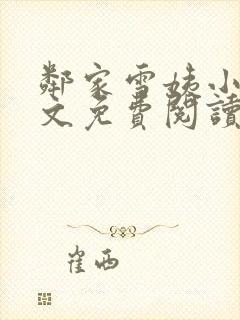 鄰家雪姨小
文免費閱讀
崔西